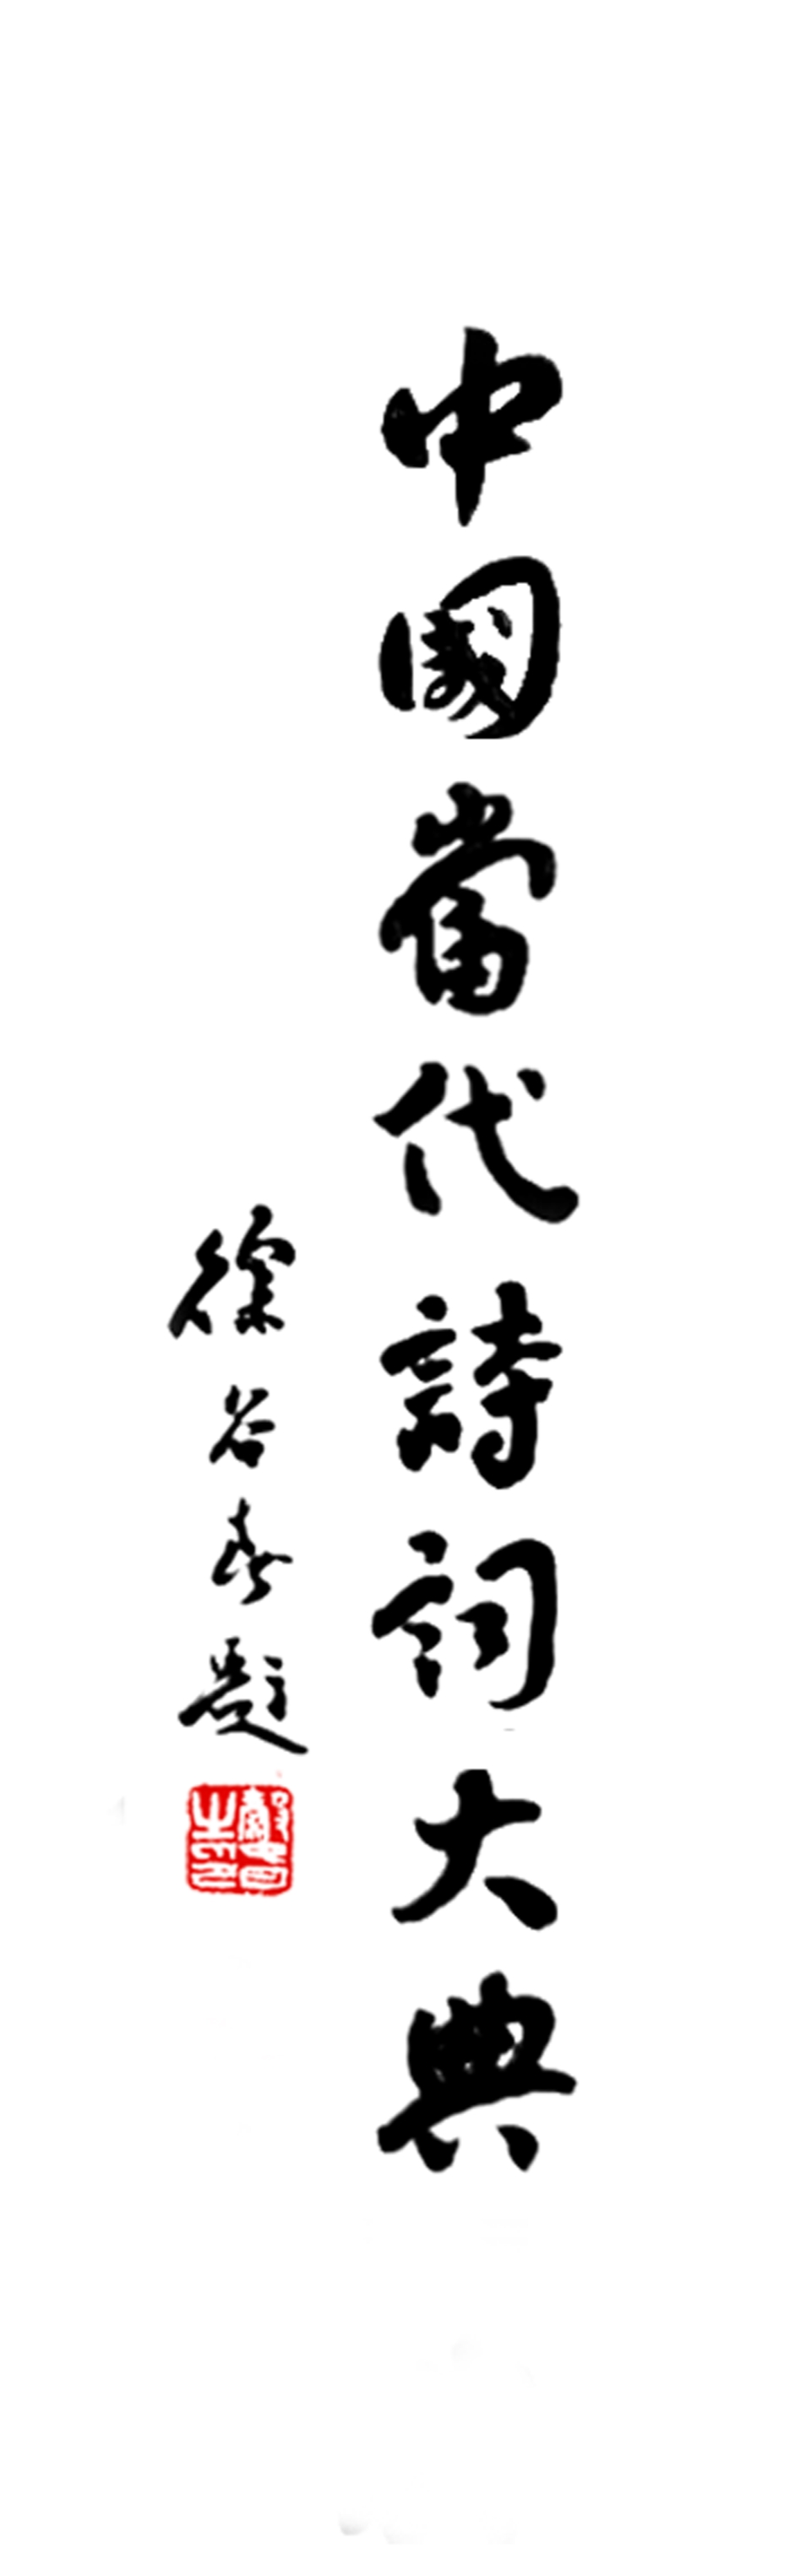 中國當代詩詞大典
徐谷甫題